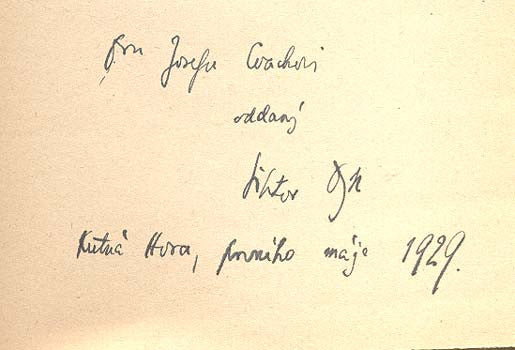 Dru Josefu Cvachovi
oddaný
Viktor Dyk
Kutná Hora, prvního máje 1929.